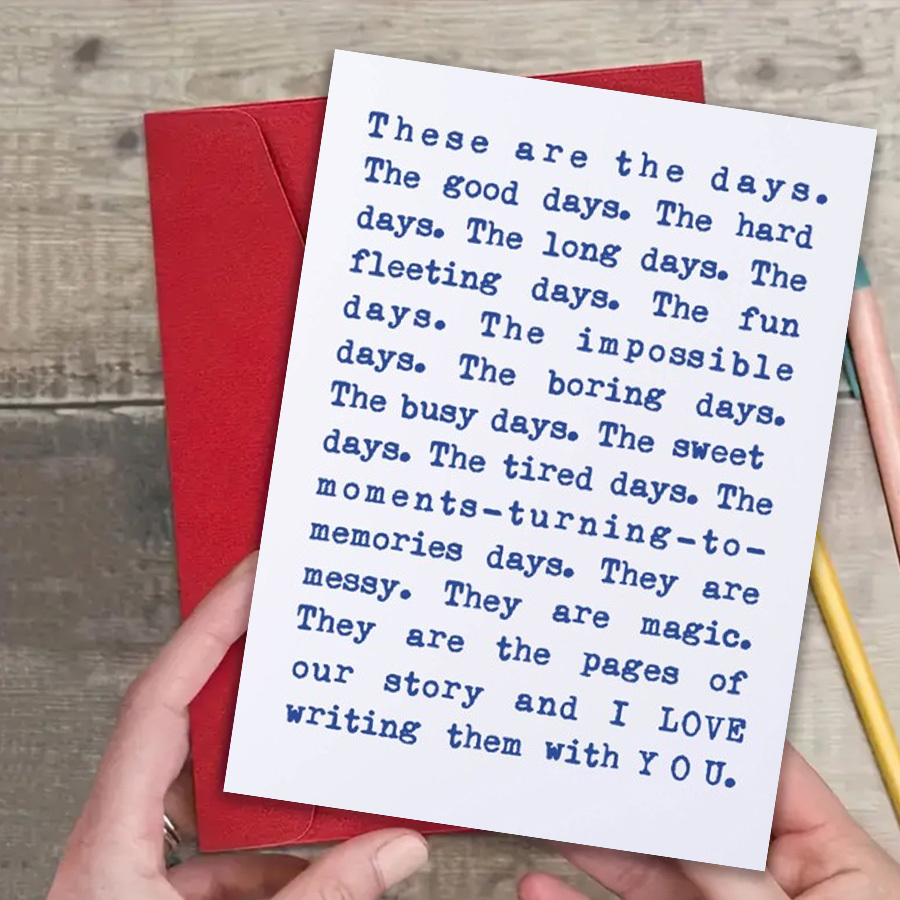 These are the days.
The good days. The hard
days. The long days. The
fleeting days. The fun
days. The impossible
days. The boring days.
The busy days. The sweet
days. The tired days. The
moments-turning-to-
memories days. They are
messy. They are magic.
They are the pages of
our story and I LOVE
writing them with Y O U.